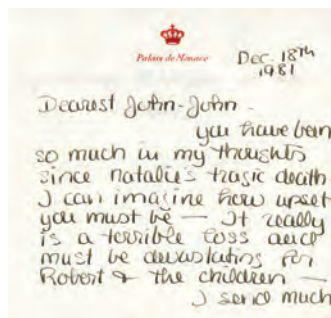 Palais de Monaco
Dec. 18th
1981
Dearest John-John -
you have been
so much in my thoughts
since Natalie's tragic death.
I can imagine how upset
you must be — It really
is a terrible loss and
must be devastating for
Robert & the children —
I send much